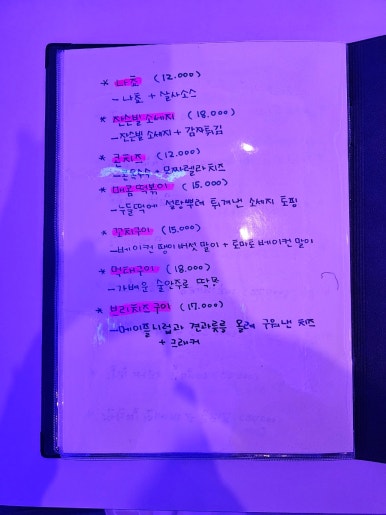 * 나쵸 (12.000)
- 나쵸 + 살사소스
* 잔슨빌 소세지 (18.000)
- 잔슨빌 소세지 + 감자튀김
* 콘치즈 (12.000)
- 콘옥수수 + 모짜렐라 치즈
* 매콤 떡볶이 (15.000)
- 누들떡에 설탕뿌려 튀겨낸 소세지 토핑
* 꼬치구이 (15.000)
- 베이컨 팽이버섯 말이 + 토마토 베이컨 말이
* 먹태구이 (18.000)
- 가벼운 술안주로 딱!
* 브리치즈구이 (17.000)
- 메이플시럽과 견과류를 올려 구워낸 치즈
+ 크래커